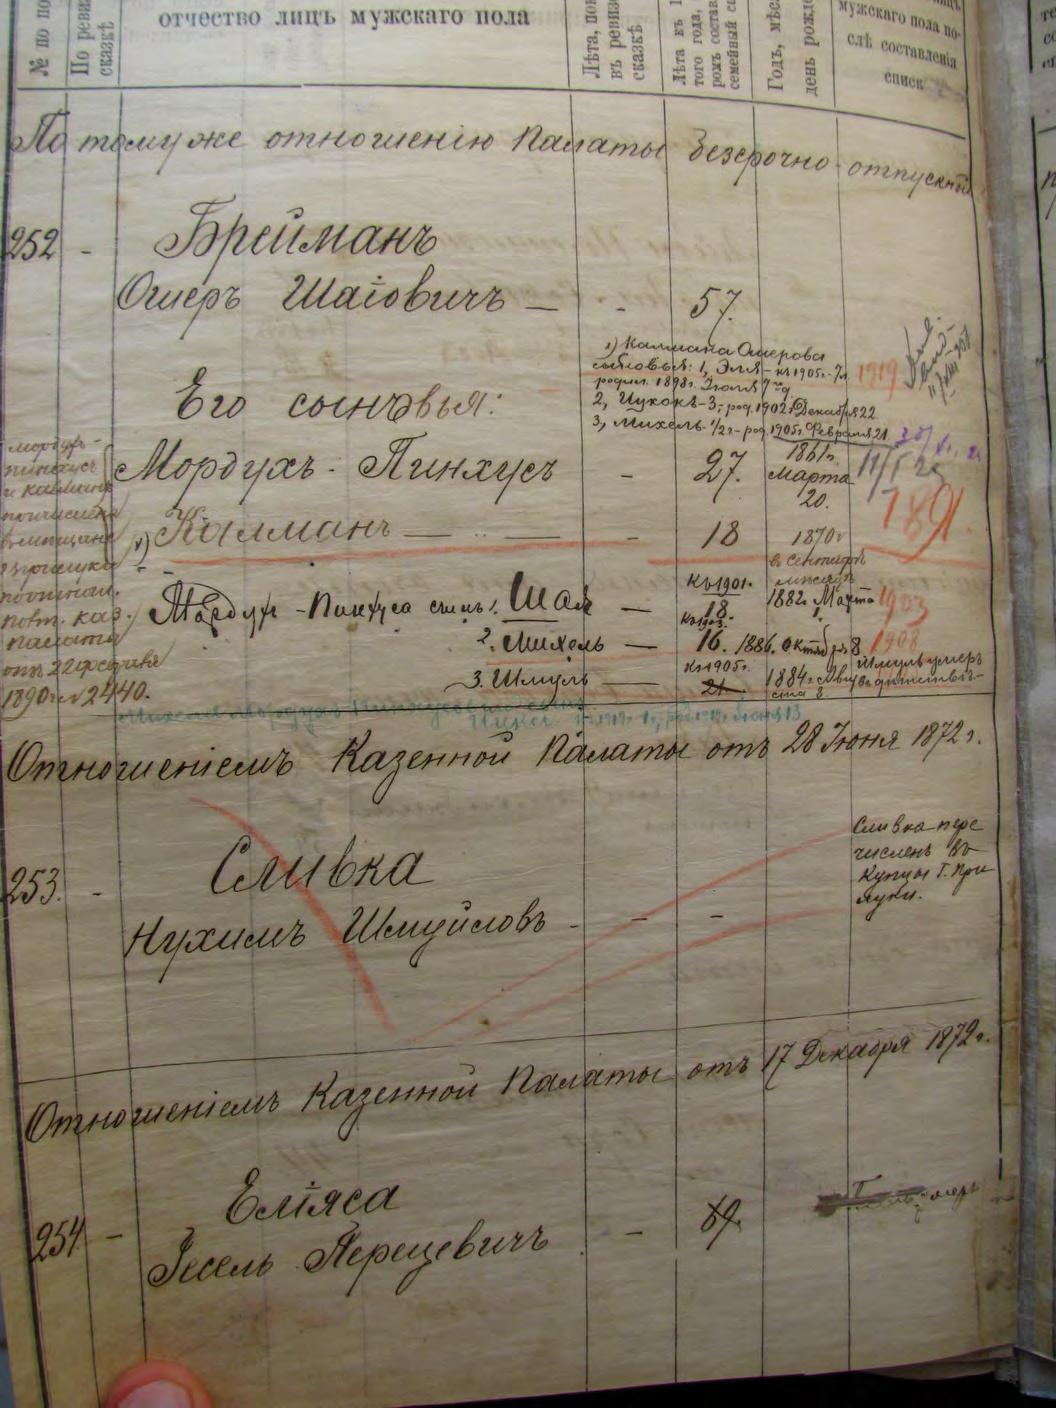 № по по
По ревиз
сказкѣ
отчество лицъ мужскаго пола
Лѣта, пок
въ ревиз
сказкѣ
Лѣта къ 1
того года,
ромъ состав
семейный сп
Годъ, мѣс
день рожде
мужскаго пола по-
слѣ составленія
списк
По тому же отношенію Палаты безсрочно-отпускной
252 -
Брейманъ
Ошеръ Шаіовичъ — - 57.
1) Калмана Ошерова
сыновья: 1, Эля - къ 1905г. 7л
родил. 1898г. Іюля 7
2, Цукокъ - 3, род. 1902г. Декабря 22
3, Михель 1/2 г. - род. 1905г. Февраля 21.
1919
Его сыновья:
Мордухъ-
Пинхусъ
и Калманъ
причислены
въ мѣщане
г. Прилуки
по отнош.
Полт. каз.
палаты
отъ 22 февраля
1890г. № 2440.
Мордухъ-Пинхусъ - 27. 1861г.
Марта
20.
11/I 25
1) Калманъ — — - 18 1870г
въ Сентябрѣ
мѣсяцѣ
1891
Мордух-Пинхуса сынъ: 1. Шая — къ 1901. 18 1882г Марта 1. 1903
2. Михель — къ 1903. 16. 1886. Октября 8 1908
3. Шмуль — къ 1905г. 21 1884г.
Шмуль умеръ
въ дѣтствѣ
Отношеніемъ Казенной Палаты отъ 28 Іюня 1872г.
253. -
Сливка
Нухимъ Шмуйловъ - - -
Сливка пере
численъ въ
Купцы Г. При
луки.
Отношеніемъ Казенной Палаты отъ 17 Декабря 1872г.
254 -
Еліяса
Іесель Перецевичъ - 69.